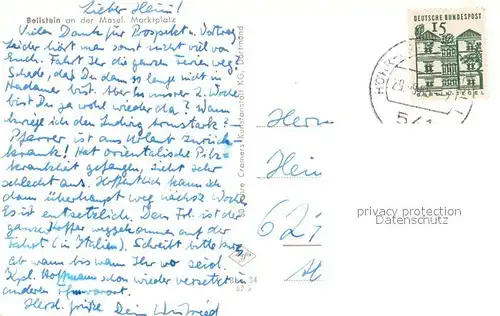 Lieber Heini!
Beilstein an der Mosel. Marktplatz
Vielen Dank für Prospekt u. Vortrag
Leider hört man sonst nicht viel von
Euch. Fahrt Ihr die ganzen Ferien weg?
Schade, daß Du dann so lange nicht in
Hadamar bist. Aber in unserer 2. Woche
bist Du ja wohl wieder da? Wann
kriege ich den Ludwig
Pfarrer ist aus Urlaub zurück
krank! Hat orientalische Pilz-
krankheit gefangen, sieht sehr
schlecht aus. Hoffentlich kann ich
dann überhaupt weg nächste Woche.
Es ist entsetzlich. Dem Frl. ist der
ganze Koffer weggekommen auf der
Fahrt (in Italien). Schreibt bitte kurz
ab wann bis wann Ihr wo seid.
Kpl. Hoffmann schon wieder versetzt in
anderen
Herzl. Grüße Dein
Jahre Cramers Kunstanstalt KG, Dortmund
DEUTSCHE BUNDESPOST
15
Herrn
Hein
621
privacy protection
Datenschutz